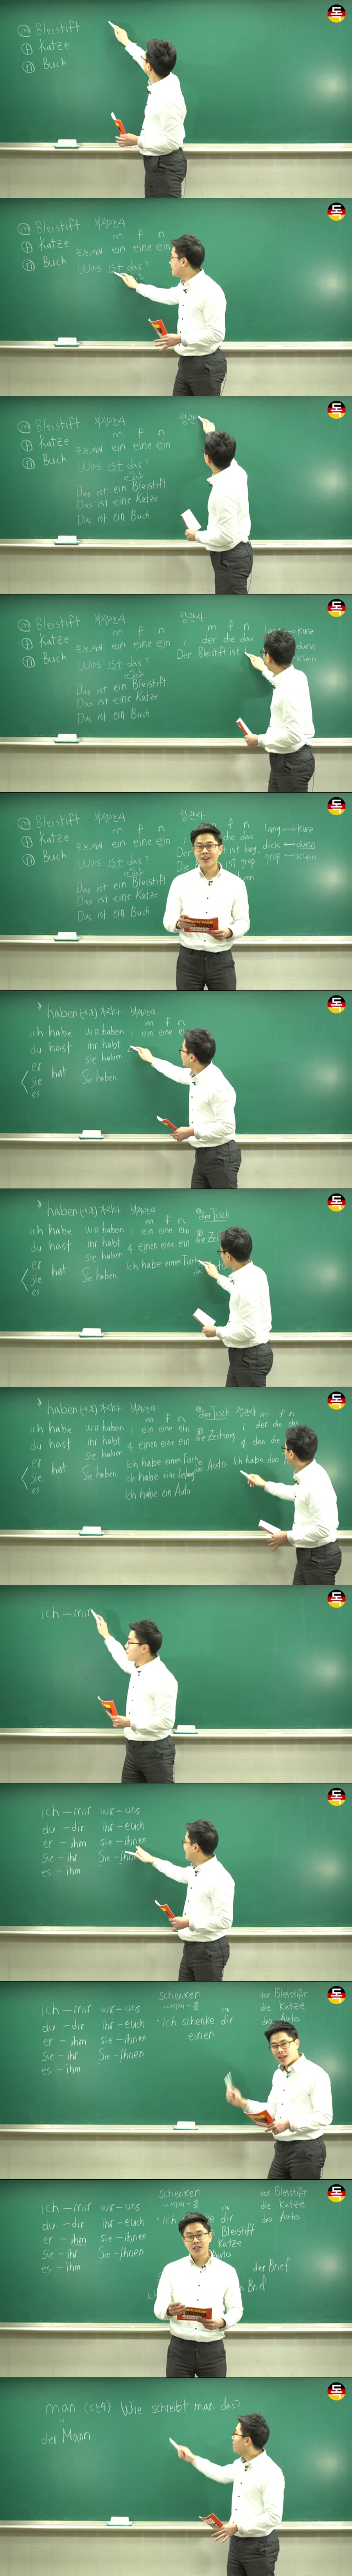 ⓜ Bleistift
ⓕ Katze
ⓝ Buch
ⓜ Bleistift 부정관사
ⓕ Katze m f n
ⓝ Buch ein eine ein
Was ist das?
ⓜ Bleistift 부정관사 정관
ⓕ Katze m f n
ⓝ Buch ein eine ein
Was ist das?
Das ist ein Bleistift
Das ist eine Katze
Das ist ein Buch
ⓜ Bleistift 부정관사 정관사
ⓕ Katze m f n m f n
ⓝ Buch ein eine ein 1 der die das
Was ist das? Der Bleistift ist
Das ist ein Bleistift
Das ist eine Katze
Das ist ein Buch
kurz
dünn
klein
ⓜ Bleistift 부정관사 정관사
ⓕ Katze m f n
ⓝ Buch ein eine ein die das
Was ist das? ist lang.
Das ist ein Bleistift ist groß
Das ist eine Katze
Das ist ein Buch
lang ↔ kurz
dick ↔ dünn
groß ↔ klein
haben 부정관사
m f n
ich habe wir haben 1 ein eine
du hast ihr habt
er sie haben
sie hat Sie haben
es
haben 부정관사 der Tisch
m f n
ich habe wir haben 1 ein eine ein
du hast ihr habt 4 einen eine ein
er sie haben Ich habe einen Tisch
sie hat Sie haben
es
haben 부정관사 der Tisch 정관사 m f n
m f n 1 der die das
ich habe wir haben 1 ein eine ein die Zeitung
du hast ihr habt 4 einen eine ein 4 den die
er sie haben Ich habe einen Tisch das Auto Ich habe den
sie hat Sie haben Ich habe eine Zeitung
es Ich habe ein Auto
ich – mir
ich – mir wir – uns
du – dir ihr – euch
er – ihm sie – ihnen
sie – ihr Sie – Ihnen
es – ihm
ich – mir wir – uns
du – dir ihr – euch
er – ihm sie – ihnen
sie – ihr Sie – Ihnen
es – ihm
schenken
~에게 ~을
Ich schenke dir
einen
der Bleistift
die Katze
das Auto
ich – mir wir – uns
du – dir ihr – euch
er – ihm sie – ihnen
sie – ihr Sie – Ihnen
es – ihm
schenken
~에게 ~을
dir
Bleistift
Katze
Auto
der Brief
Brief
der Bleistift
die Katze
das Auto
man Wie schreibt man das?
der Mann